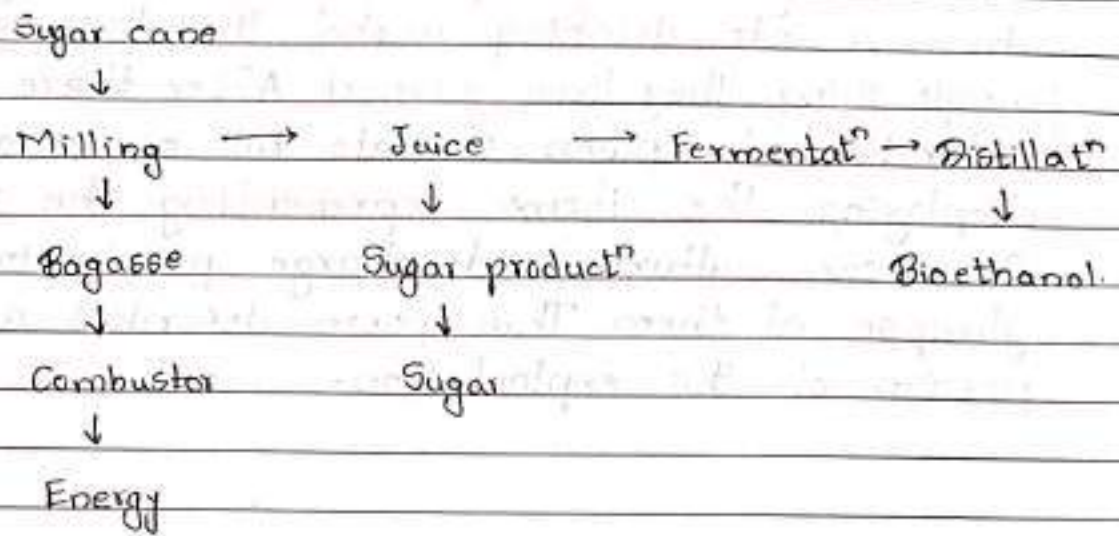 Sugar cane
↓
Milling → Juice → Fermentatⁿ → Distillatⁿ
↓ ↓ ↓
Bagasse Sugar productⁿ. Bioethanol.
↓ ↓
Combustor Sugar
↓
Energy